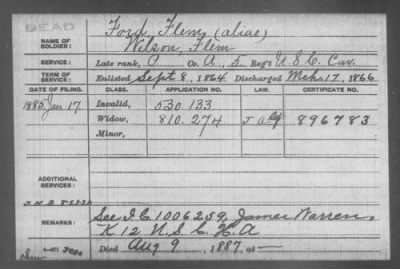 DEAD
Ford, Flem (alias)
NAME OF SOLDIER: Wilson, Flem
SERVICE: Late rank, P Co. A, 5 Reg't U.S.C. Cav.
TERM OF SERVICE: Enlisted Sept 8, 1864 Discharged Mch 17, 1866
DATE OF FILING. CLASS. APPLICATION NO. LAW. CERTIFICATE NO.
1885 Jan 17 Invalid, 530.133
Widow, 810.274 896783
Minor,
ADDITIONAL SERVICES:
REMARKS: See I.C. 1006259, James Warren,
K 12 U.S.C.H.A
Died Aug 9, 1887, at —